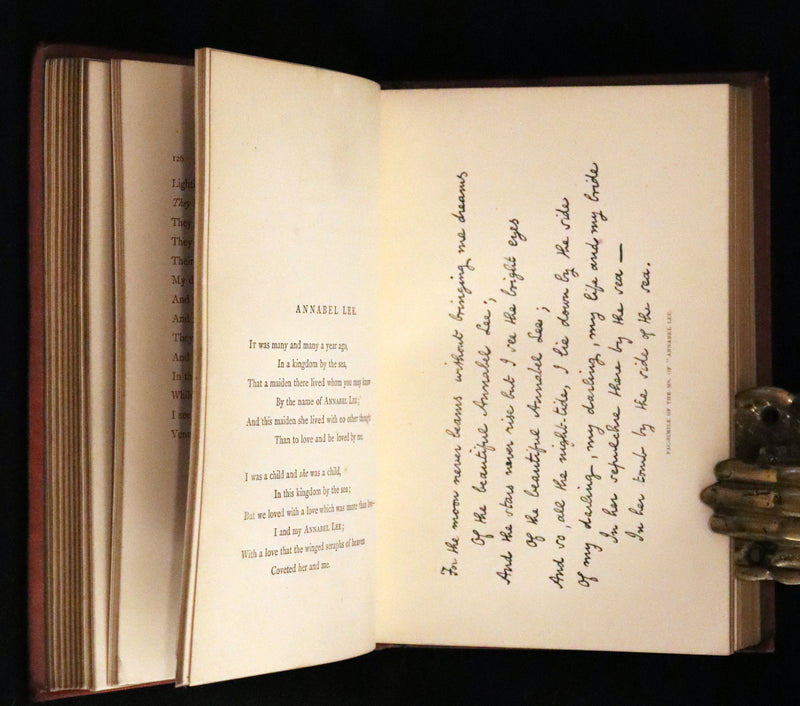 126
Light
They
They
They
Their
My d
And
And
They
And
In th
While
I see
Venu
ANNABEL LEE.
IT was many and many a year ago,
In a kingdom by the sea,
That a maiden there lived whom you may know
By the name of ANNABEL LEE;
And this maiden she lived with no other thought
Than to love and be loved by me.
I was a child and she was a child,
In this kingdom by the sea;
But we loved with a love which was more than love—
I and my ANNABEL LEE;
With a love that the winged seraphs of heaven
Coveted her and me.
For the moon never beams without bringing me dreams
Of the beautiful Annabel Lee;
And the stars never rise but I see the bright eyes
Of the beautiful Annabel Lee;
And so, all the night-tide, I lie down by the side
Of my darling, my darling, my life and my bride
In her sepulchre there by the sea —
In her tomb by the side of the sea.
FAC-SIMILE OF THE MS. OF "ANNABEL LEE.